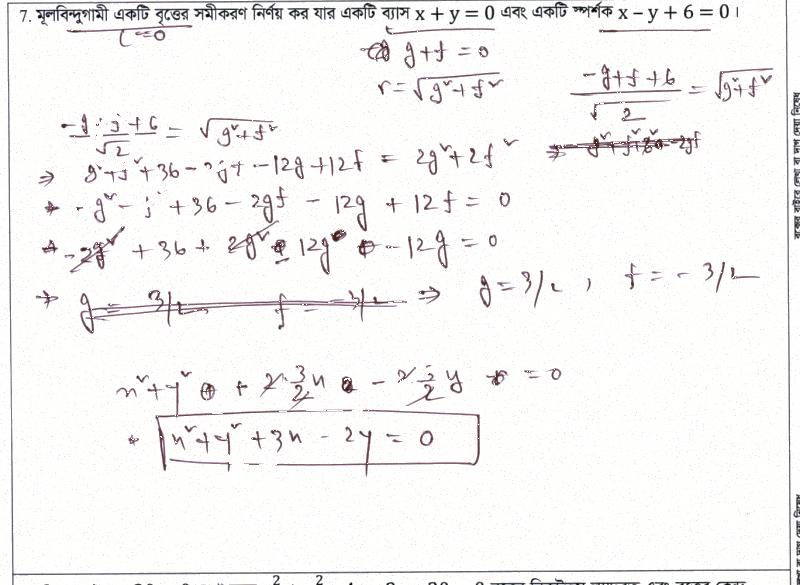 7. মূলবিন্দুগামী একটি বৃত্তের সমীকরণ নির্ণয় কর যার একটি ব্যাস x + y = 0 এবং একটি স্পর্শক x – y + 6 = 0।
c=0
g+f = 0
r = √(g²+f²)
(-g+f+6)/√2 = √(g²+f²)
(-g+f+6)/√2 = √(g²+f²)
⇒ g²+f²+36-2gf-12g+12f = 2g²+2f²
⇒ -g²-f²+36-2gf-12g+12f = 0
⇒ -2g²+36+2g²-12g-12g = 0
⇒ g = 3/2 f = -3/2 ⇒ g = 3/2, f = -3/2
x²+y²+2·3/2x-2·3/2y = 0
⇒ x²+y²+3x-2y = 0